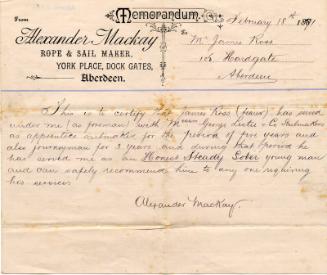 Memorandum.
From
Alexander Mackay
ROPE & SAIL MAKER,
YORK PLACE, DOCK GATES,
Aberdeen.
February 18th 1891
To
Mr James Ross
Hardgate
Aberdeen
This is to certify that James Ross (junior) has served
under me (as foreman) with Messrs George Leslie & Co Sailmakers
as apprentice sailmaker for the period of five years and
also journeyman for 3 years and during that period he
has served me as an Honest Steady Sober young man
and can safely recommend him to any one requiring
his services
Alexander Mackay.